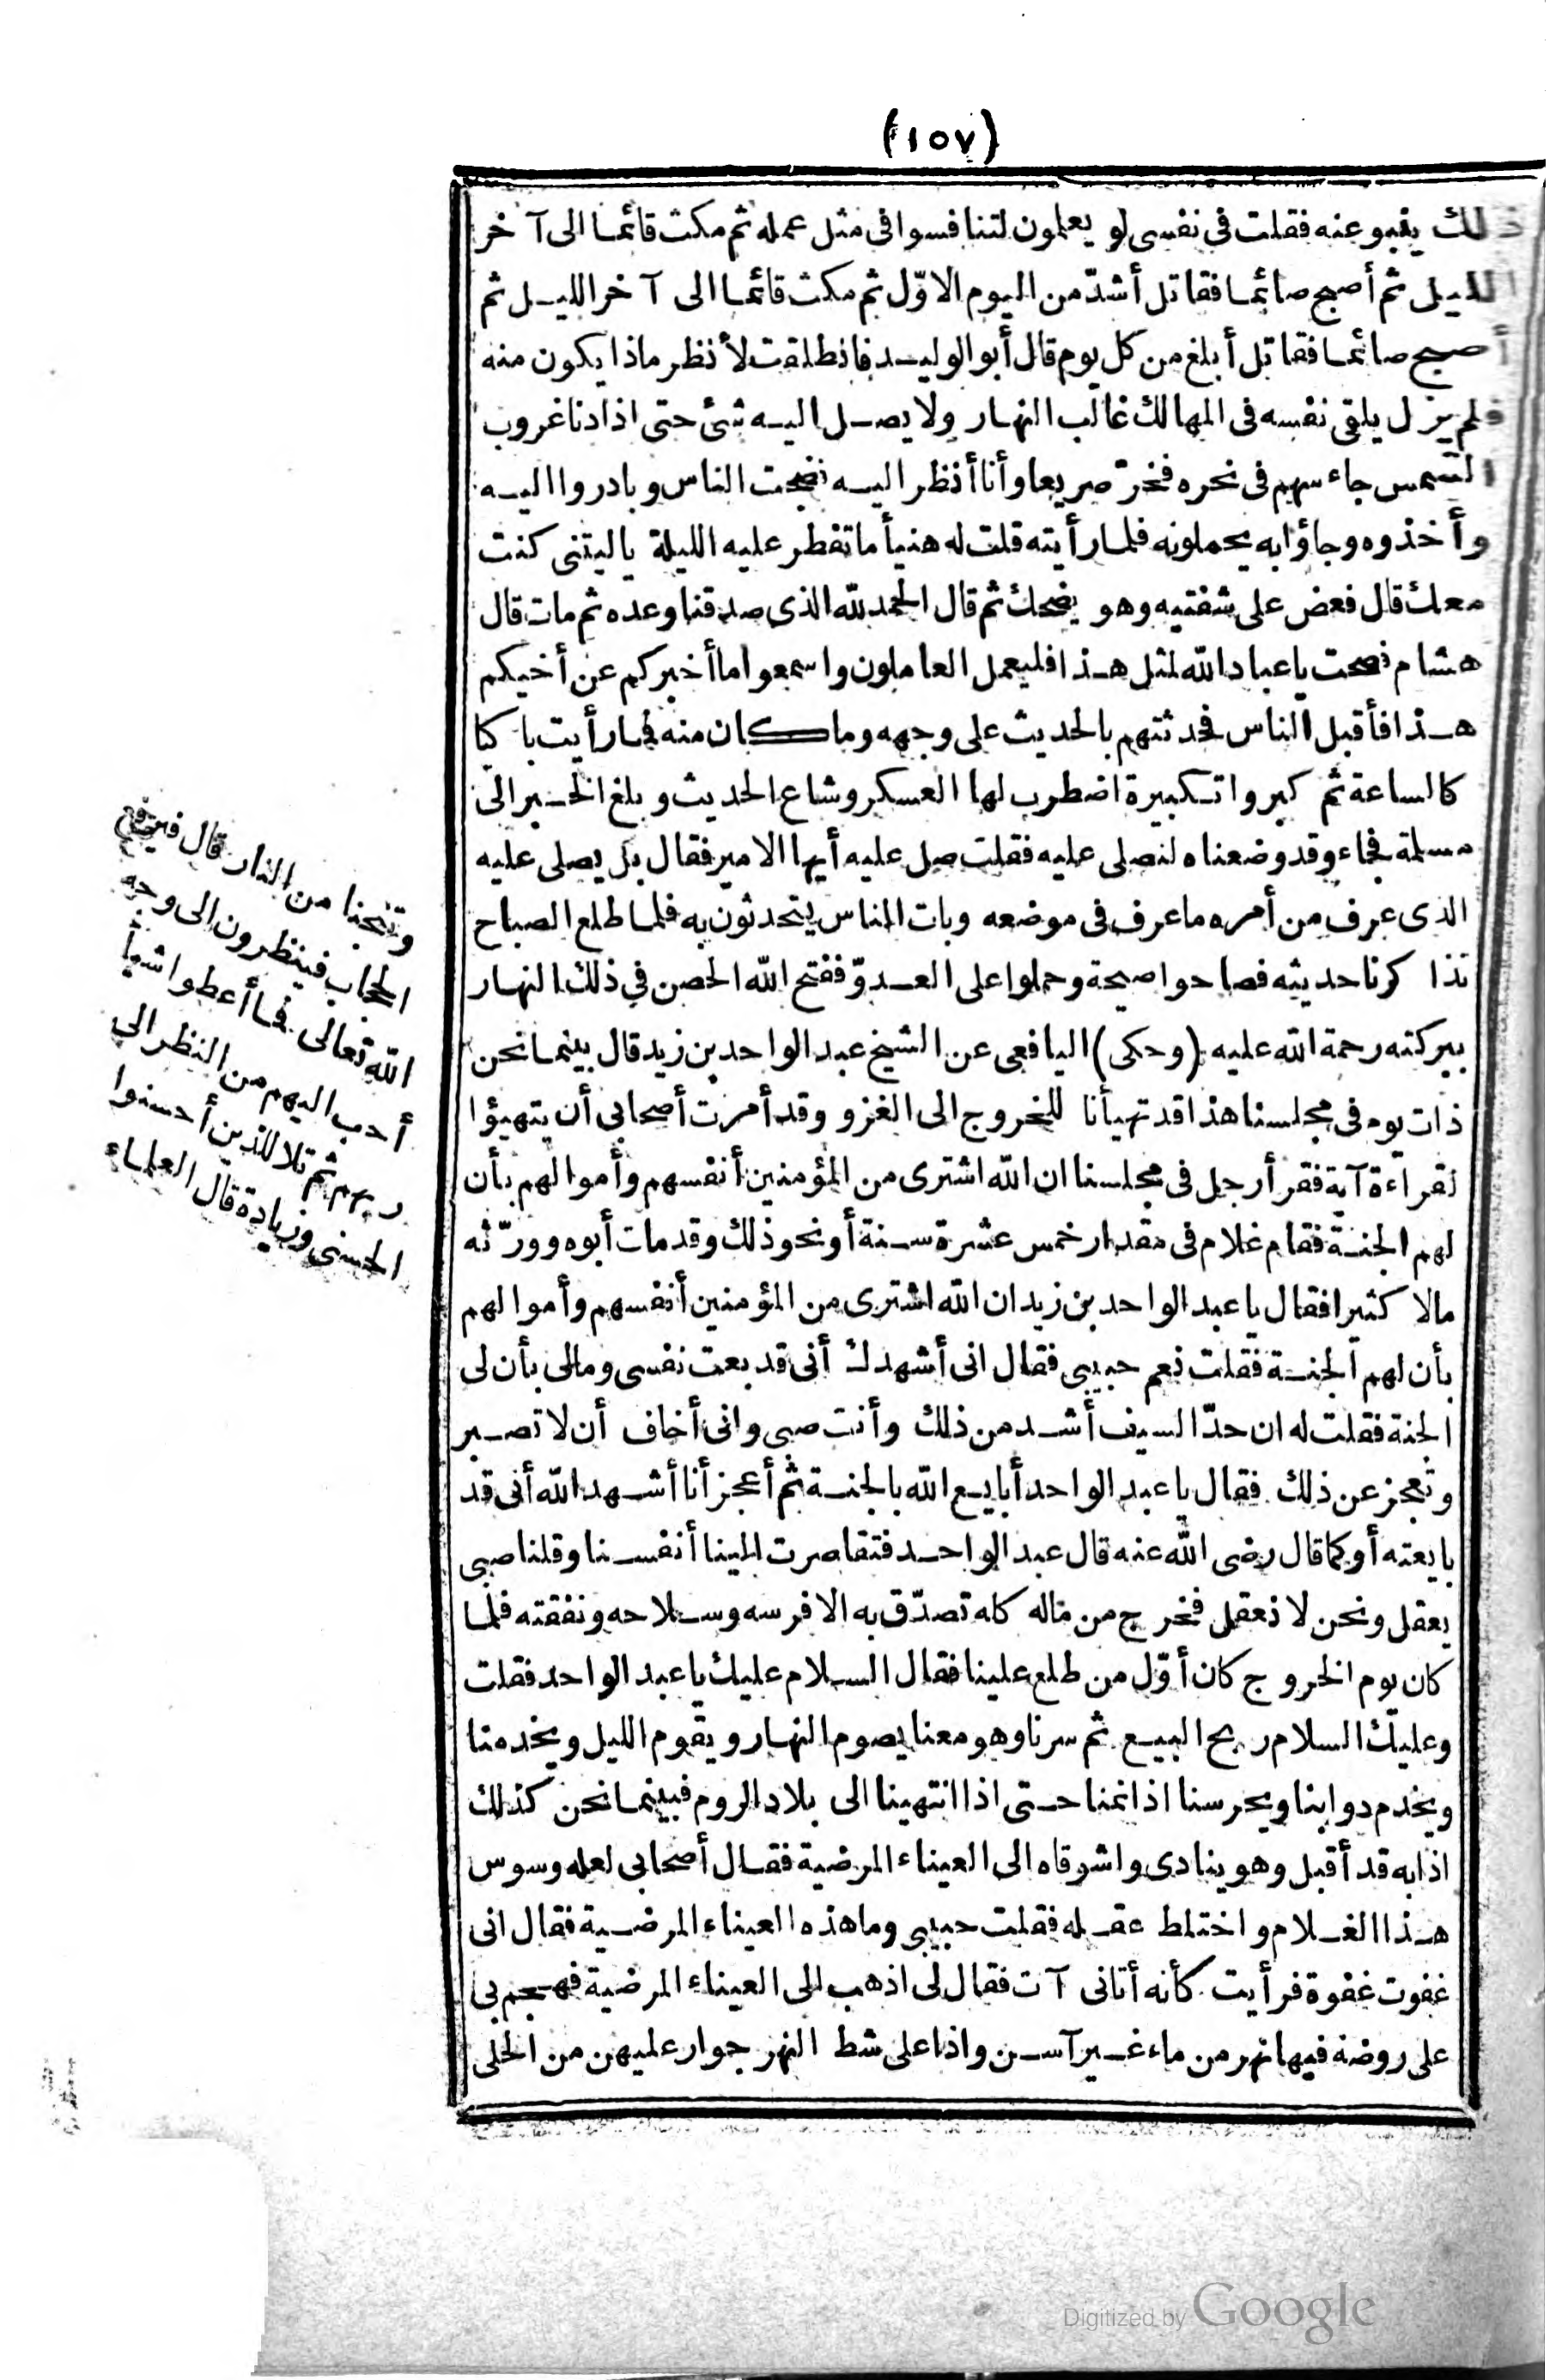 (١٥٧)
ذلك ينبو عنه فقلت فى نفسى لو يعلمون لتنافسوا فى مثل عمله ثم مكث قائما الى آخر
الليل ثم أصبح صائما فقاتل أشدّ من اليوم الاوّل ثم مكث قائما الى آخر الليل ثم
أصبح صائما فقاتل أبلغ من كل يوم قال أبو الوليد فانطلقت لأنظر ماذا يكون منه
فلم يزل يلقى نفسه فى المهالك غالب النهار ولا يصل اليه شئ حتى اذا دنا غروب
الشمس جاء سهم فى نحره فخرّ صريعا وأنا أنظر اليه فضجت الناس وبادروا اليه
وأخذوه وجاؤا به يحملونه فلما رأيته قلت له هنيأ ما تفطر عليه الليلة ياليتنى كنت
معك قال فعض على شفتيه وهو يضحك ثم قال الحمد لله الذى صدقنا وعده ثم مات قال
هشام فصحت يا عباد الله لمثل هذا فليعمل العاملون واسمعوا ما أخبركم عن أخيكم
هذا فأقبل الناس فحدثتهم بالحديث على وجهه وما كان منه فما رأيت باكيا
كالساعة ثم كبروا تكبيرة اضطرب لها العسكر وشاع الحديث وبلغ الخبر الى
مسلمة فجاء وقد وضعناه لنصلى عليه فقلت صل عليه أيها الامير فقال بل يصلى عليه
الذى عرف من أمره ما عرف فى موضعه وبات الناس يتحدثون به فلما طلع الصباح
تذاكرنا حديثه فصاحوا صيحة وحملوا على العدوّ ففتح الله الحصن في ذلك النهار
ببركته رحمة الله عليه (وحكى) اليافعى عن الشيخ عبد الواحد بن زيد قال بينما نحن
ذات يوم فى مجلسنا هذا قد تهيأنا للخروج الى الغزو وقد أمرت أصحابى أن يتهيؤا
لقراءة آية فقرأ رجل فى مجلسنا ان الله اشترى من المؤمنين أنفسهم وأموالهم بأن
لهم الجنة فقام غلام فى مقدار خمس عشرة سنة أو نحو ذلك وقد مات أبوه وورّثه
مالا كثيرا فقال يا عبد الواحد بن زيد ان الله اشترى من المؤمنين أنفسهم وأموالهم
بأن لهم الجنة فقلت نعم حبيبى فقال انى أشهدك أنى قد بعت نفسى ومالى بأن لى
الجنة فقلت له ان حدّ السيف أشد من ذلك وأنت صبى وانى أخاف أن لا تصبر
وتعجز عن ذلك فقال يا عبد الواحد أبايع الله بالجنة ثم أعجز أنا أشهد الله أنى قد
بايعته أو كما قال رضى الله عنه قال عبد الواحد فتقاصرت الينا أنفسنا وقلنا صبى
يعقل ونحن لا نعقل فخرج من ماله كله تصدّق به الا فرسه وسلاحه ونفقته فلما
كان يوم الخروج كان أوّل من طلع علينا فقال السلام عليك يا عبد الواحد فقلت
وعليك السلام ربح البيع ثم سرنا وهو معنا يصوم النهار ويقوم الليل ويخدمنا
ويخدم دوابنا ويحرسنا اذا نمنا حتى اذا انتهينا الى بلاد الروم فبينما نحن كذلك
اذا به قد أقبل وهو ينادى واشوقاه الى العيناء المرضية فقال أصحابى لعله وسوس
هذا الغلام واختلط عقله فقلت حبيبى وما هذه العيناء المرضية فقال انى
غفوت غفوة فرأيت كأنه أتانى آت فقال لى اذهب الى العيناء المرضية فهجم بى
على روضة فيها نهر من ماء غير آسن واذا على شط النهر جوار عليهن من الحلى
وتنجنا من النار قال فيرفع
الحجاب فينظرون الى وجه
الله تعالى فما أعطوا شيأ
أحب اليهم من النظر الى
ربهم ثم تلا للذين أحسنوا
الحسنى وزيادة قال العلماء
Digitized by Google